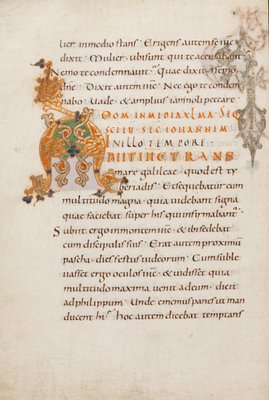 lier inmedio stans. Erigens autem se ihc
dixit. Mulier, ubi sunt qui te accusabant.
Nemo te condemnauit. Quae dixit. Nemo
dne. Dixit autem ihc. Nec ego te condem
nabo. Uade, & amplius iam noli peccare.
DOM IN MEDIA XLMA
SCI EU SEC IOHANNEM
IN ILLO TEMPORE
ABIIT IHC TRANS
mare galileae, quod est ty
beriadis. Et sequebatur eum
multitudo magna, quia uidebant signa
quae faciebat super his qui infirmabant.
Subiit ergo in montem ihc, & ibi sedebat
cum discipulis suis. Erat autem proximum
pascha, dies festus iudeorum. Cum suble
uasset ergo oculos ihc, & uidisset quia
multitudo maxima uenit ad eum, dicit
ad philippum. Unde ememus panes ut man
ducent hi. Hoc autem dicebat temptans